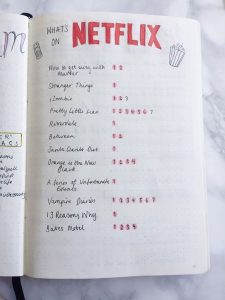 WHAT'S
ON NETFLIX
How to get away with 1 2
Murder
Stranger Things 1
iZombie 1 2 3
Pretty Little Liars 1 2 3 4 5 6 7
Riverdale 1
Between 1 2
Santa Clarita Diet 1
Orange is the New 1 2 3 4
Black
A Series of Unfortunate 1
Events
Vampire Diaries 1 2 3 4 5 6 7
13 Reasons Why 1
Bates Motel 1 2 3 4